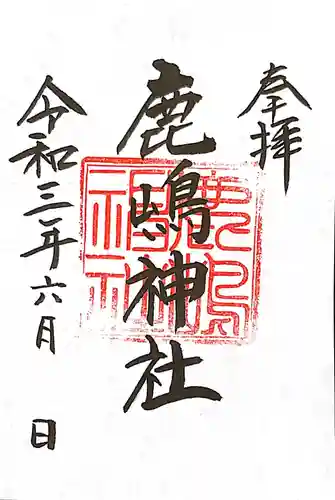 奉拝
鹿嶋神社
令和三年六月 日
鹿嶋神社